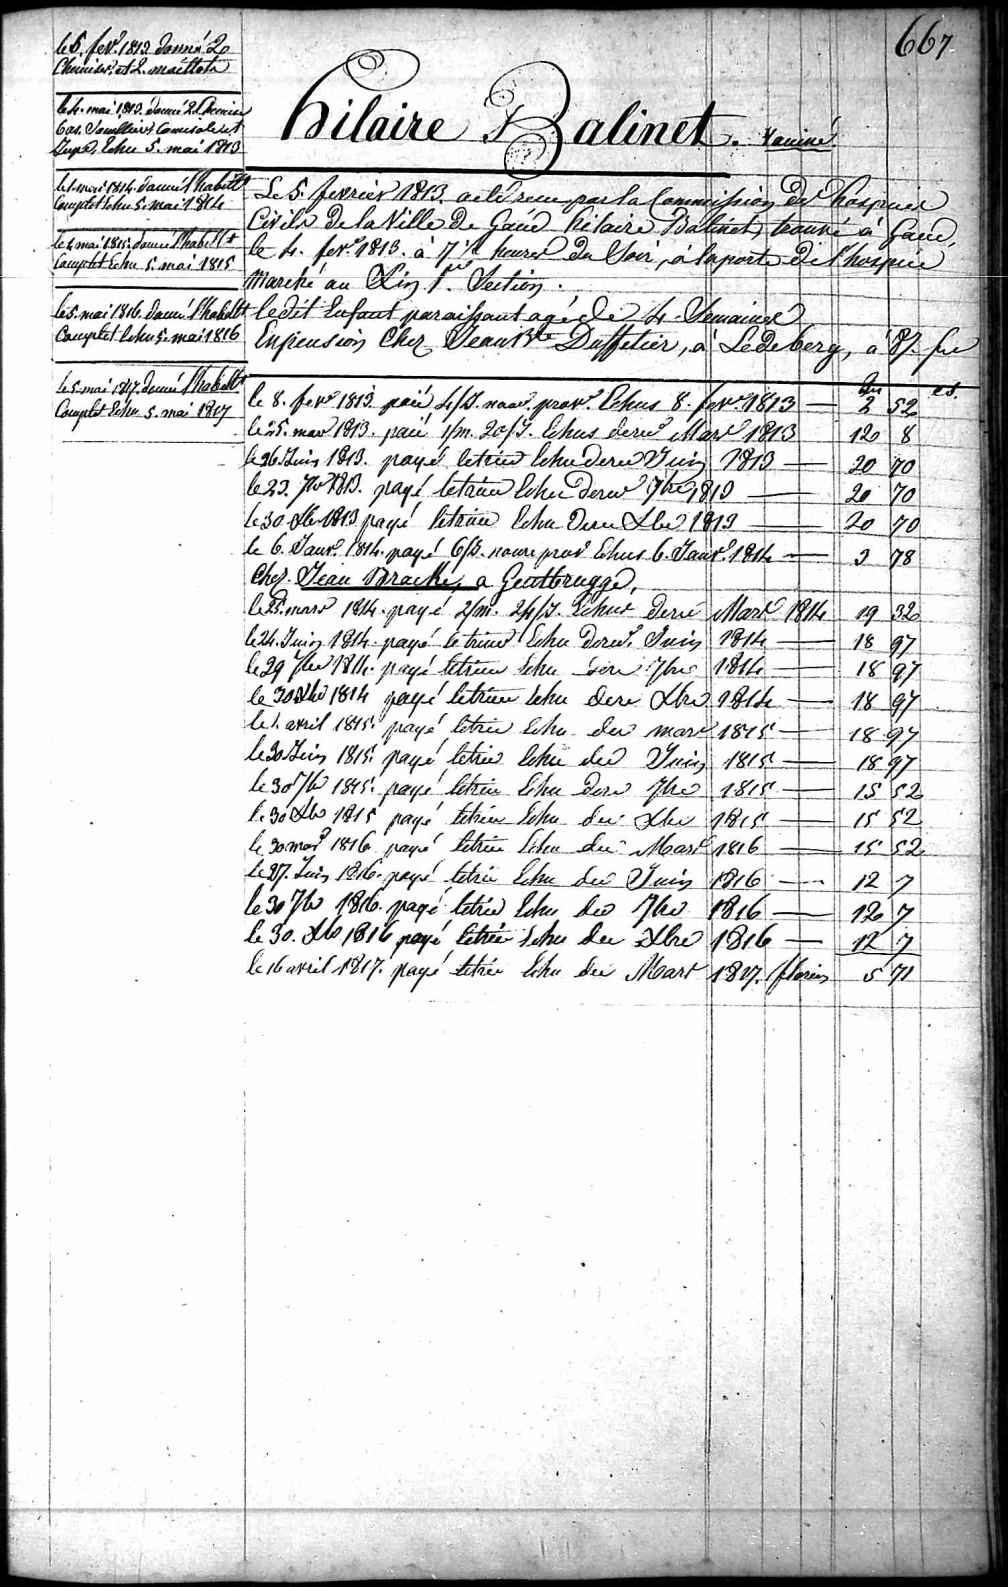 667
le 5. fevr. 1813 donné 2
Chemises et 2. maillots
le 4. mai 1813. donné 2 Chemises
bas. Souliers Camisole et
Jupe, Echu 5. mai 1813
le 1. mai 1814. donné l'habillt
Complet Echu 5. mai 1814
le 4 mai 1815. donné l'habillt
Complet Echu 5. mai 1815
le 5. mai 1816. donné l'habillt
Complet Echu 5. mai 1816
le 5. mai 1817. donné l'habillt
Complet Echu 5. mai 1817
hilaire Balinet. Vacciné
Le 5. fevrier 1813. a été recu par la Commission des hospices
Civils de la Ville de Gand hilaire Balinet, trouvé à Gand,
le 4. fevr. 1813. à 7 1/2 heures du Soir, à la porte de l'hospice
Marché au Lin 1e. Section.
ledit Enfant paraissant agé de 4. Semaines
En pension Chez Jean Bte Duffelier, à Ledeberg, à 87. fcs
frs cs.
le 8. fevr. 1813. paié 4/J. nour. prov. Echus 8. fevr. 1813 — 2 52
le 25. mars 1813. paié 1/m. 20/J. Echus derr. Mars 1813 12 8
le 26 Juin 1813. payé letrim Echu derr Juin 1813 — 20 70
le 23. 7br 1813. payé letrim Echu derr 7bre 1813 — 20 70
le 30 Xbr 1813 payé letrim Echu derr Xbre 1813 — 20 70
le 6. Janvr. 1814. payé 6/J. nour prov Echus 6. Janvr. 1814 — 3 78
Chez. Jean Bracke, a Gentbrugge,
le 25. mars 1814. payé 2/m. 24/J. Echus derre Mars 1814 19 32
le 24. Juin 1814. payé le trim Echu derr. Juin 1814 — 18 97
le 29 7bre 1814. payé letrim Echu derr 7bre 1814 — 18 97
le 30 Xbre 1814 payé letrim Echu derr Xbre 1814 — 18 97
le 1. avril 1815. payé letrim Echu der mars 1815 — 18 97
le 30 Juin 1815. payé letrim Echu der Juin 1815 — 18 97
le 30 7br 1815. payé letrim Echu derr 7bre 1815 — 15 52
le 30 Xbr 1815 payé letrim Echu der Xbre 1815 — 15 52
le 30 mars 1816 payé letrim Echu der Mars 1816 — 15 52
le 27. Juin 1816. payé letrim Echu der Juin 1816 — 12 7
le 30 7br 1816. payé letrim Echu der 7bre 1816 — 12 7
le 30. Xbr 1816 payé letrim Echu der Xbre 1816 — 12 7
le 16 avril 1817. payé letrim Echu der Mars 1817. florins 5 71